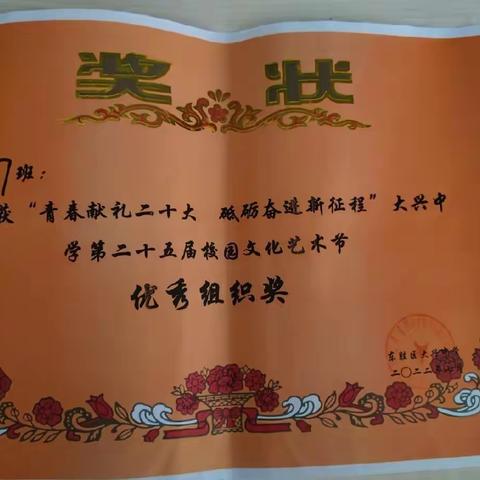 奖状
7班：
获“青春献礼二十大 砥砺奋进新征程”大兴中
学第二十五届校园文化艺术节
优秀组织奖
东胜区大兴
二〇二二年